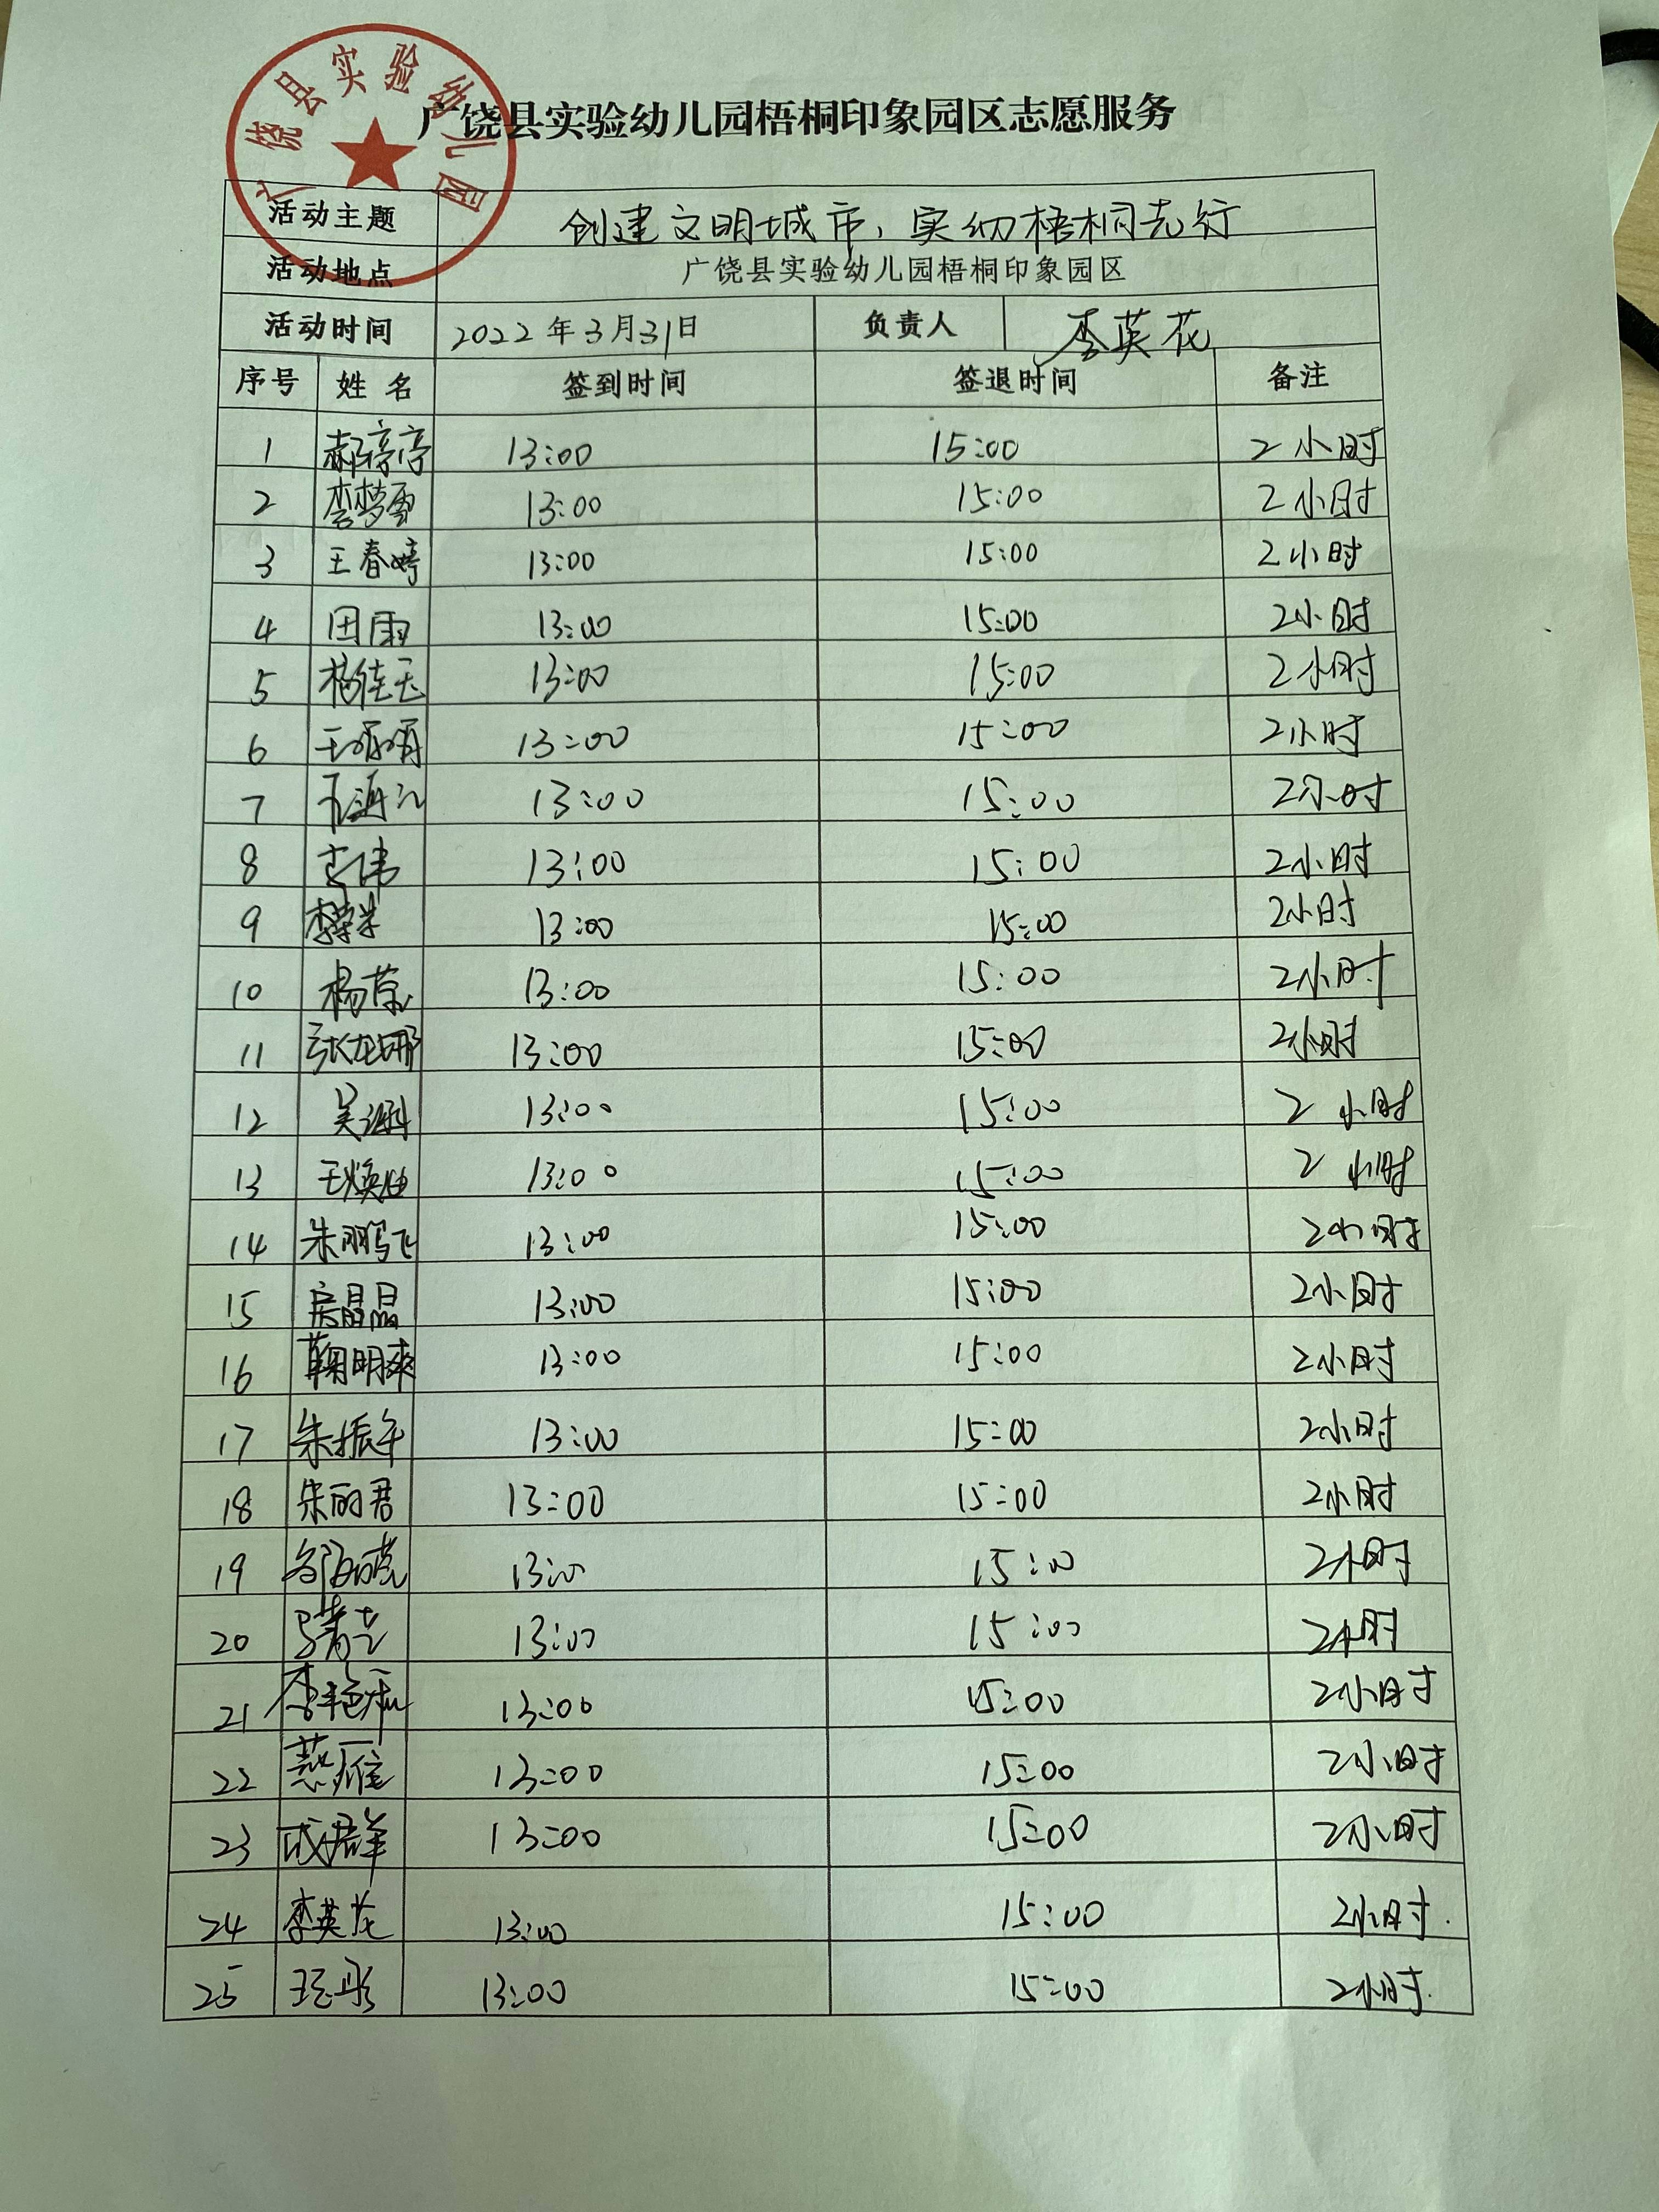 广饶县实验幼儿园
广饶县实验幼儿园梧桐印象园区志愿服务
活动主题 创建文明城市，实幼梧桐先行
活动地点 广饶县实验幼儿园梧桐印象园区
活动时间 2022年3月31日 负责人 李英花
序号 姓名 签到时间 签退时间 备注
1 郝婷婷 13:00 15:00 2小时
2 李梦雪 13:00 15:00 2小时
3 王春婷 13:00 15:00 2小时
4 田雨 13:00 15:00 2小时
5 杨佳玉 13:00 15:00 2小时
6 13:00 15:00 2小时
7 13:00 15:00 2小时
8 李伟 13:00 15:00 2小时
9 13:00 15:00 2小时
10 杨蕊 13:00 15:00 2小时
11 张龙娜 13:00 15:00 2小时
12 13:00 15:00 2小时
13 13:00 15:00 2小时
14 朱鹏飞 13:00 15:00 2小时
15 房晶晶 13:00 15:00 2小时
16 鞠明爽 13:00 15:00 2小时
17 朱振华 13:00 15:00 2小时
18 朱丽君 13:00 15:00 2小时
19 13:00 15:00 2小时
20 13:00 15:00 2小时
21 13:00 15:00 2小时
22 燕雁 13:00 15:00 2小时
23 成群 13:00 15:00 2小时
24 李英花 13:00 15:00 2小时.
25 13:00 15:00 2小时.